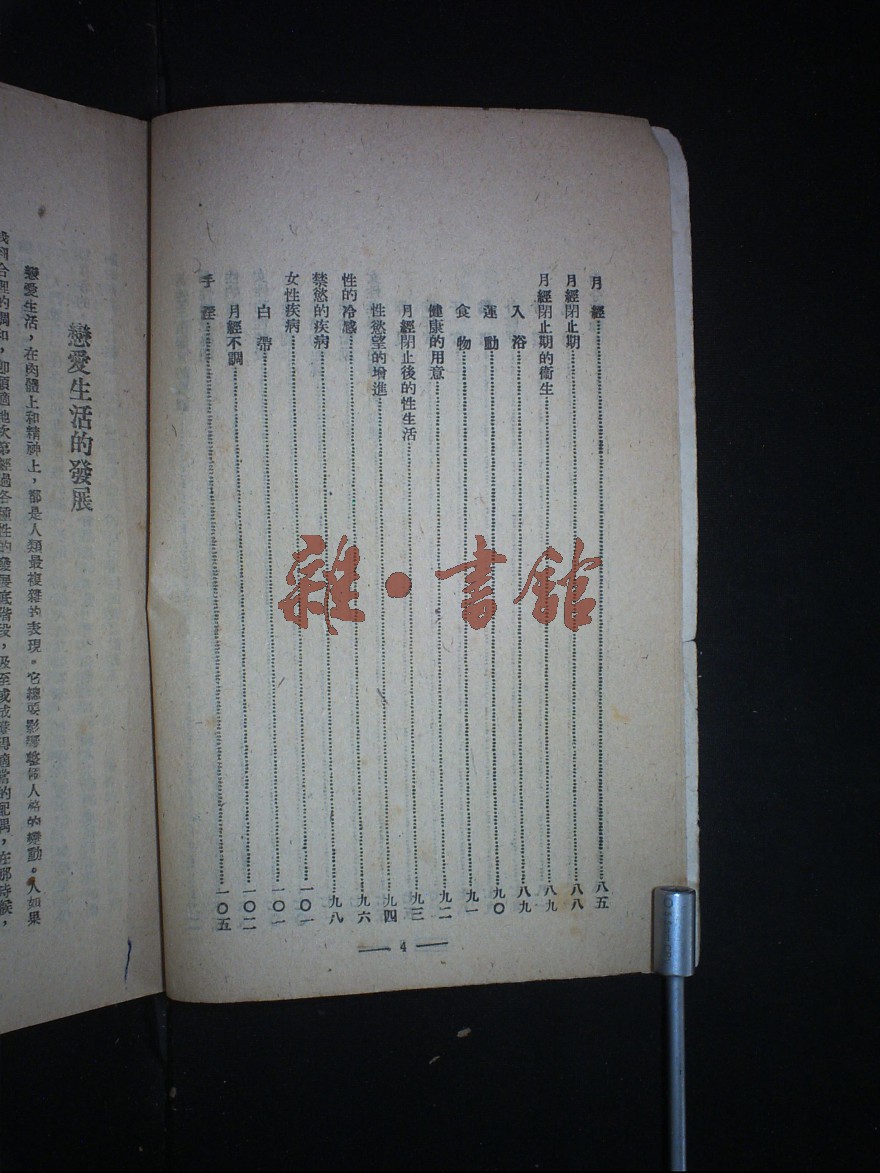 月經……八五
月經閉止期……八八
月經閉止期的衞生……八九
入浴……八九
運動……九〇
食物……九一
健康的用意……九二
月經閉止後的性生活……九三
性慾望的增進……九四
性的冷感……九六
禁慾的疾病……九八
女性疾病……一〇一
白帶……一〇一
月經不調……一〇二
手婬……一〇五
— 4 —
雜·書館
戀愛生活的發展
戀愛生活，在肉體上和精神上，都是人類最複雜的表現。它總要影響整個人格的變動。人如果
合理的調和，即順適地次第經過各種性的發展底階段，及至
適當的配偶，在那時候，